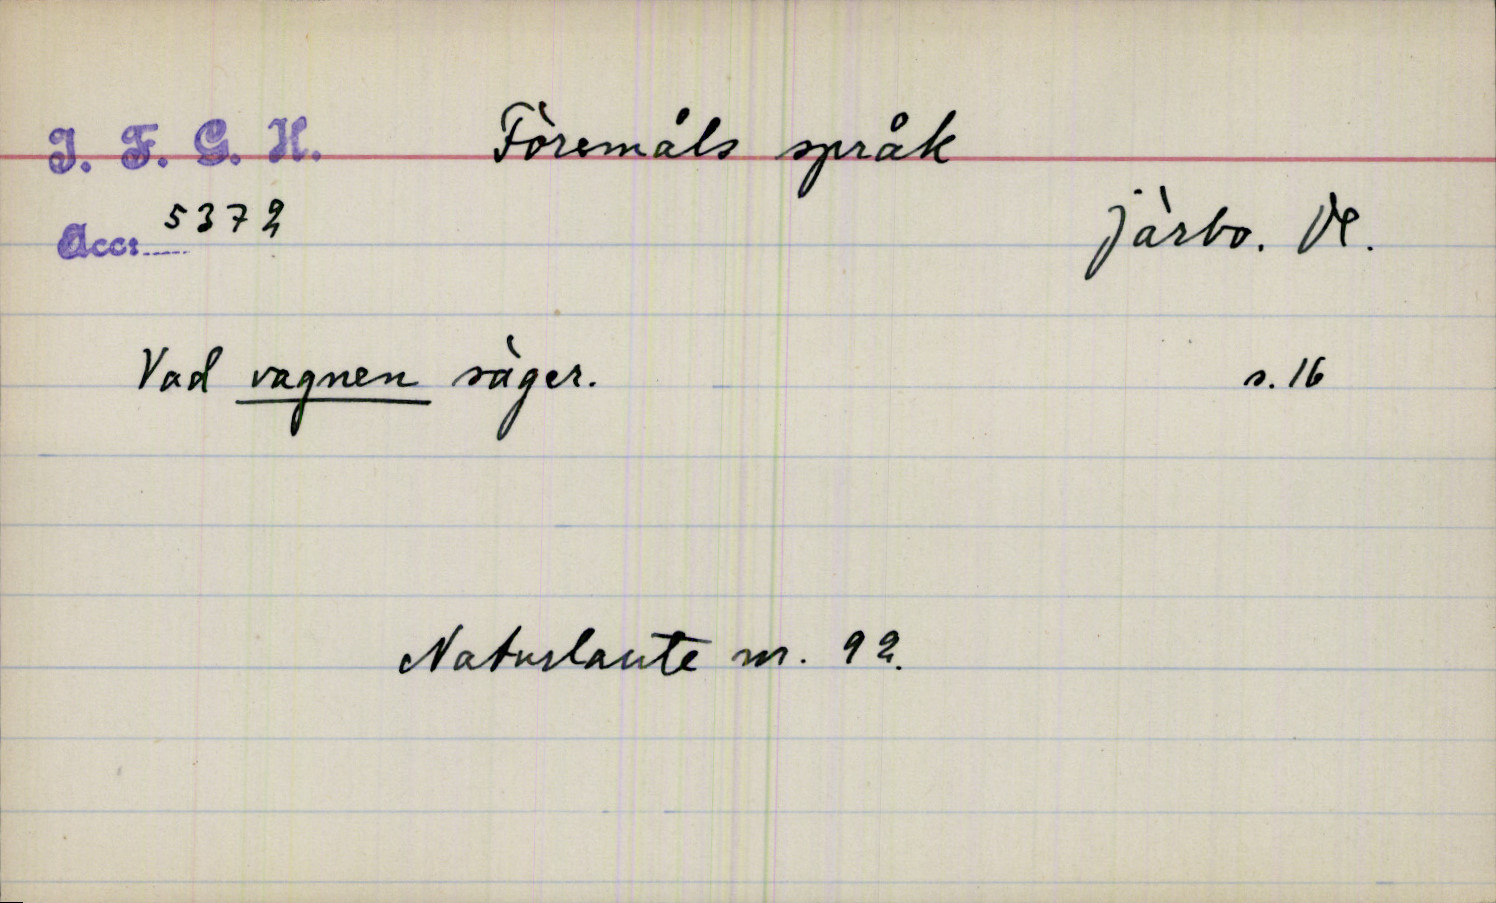 I. F. G. H.
Föremåls språk
Acc: 5372
Järbo. Vl.
Vad vagnen säger.
s. 16
Naturlaute nr. 92.